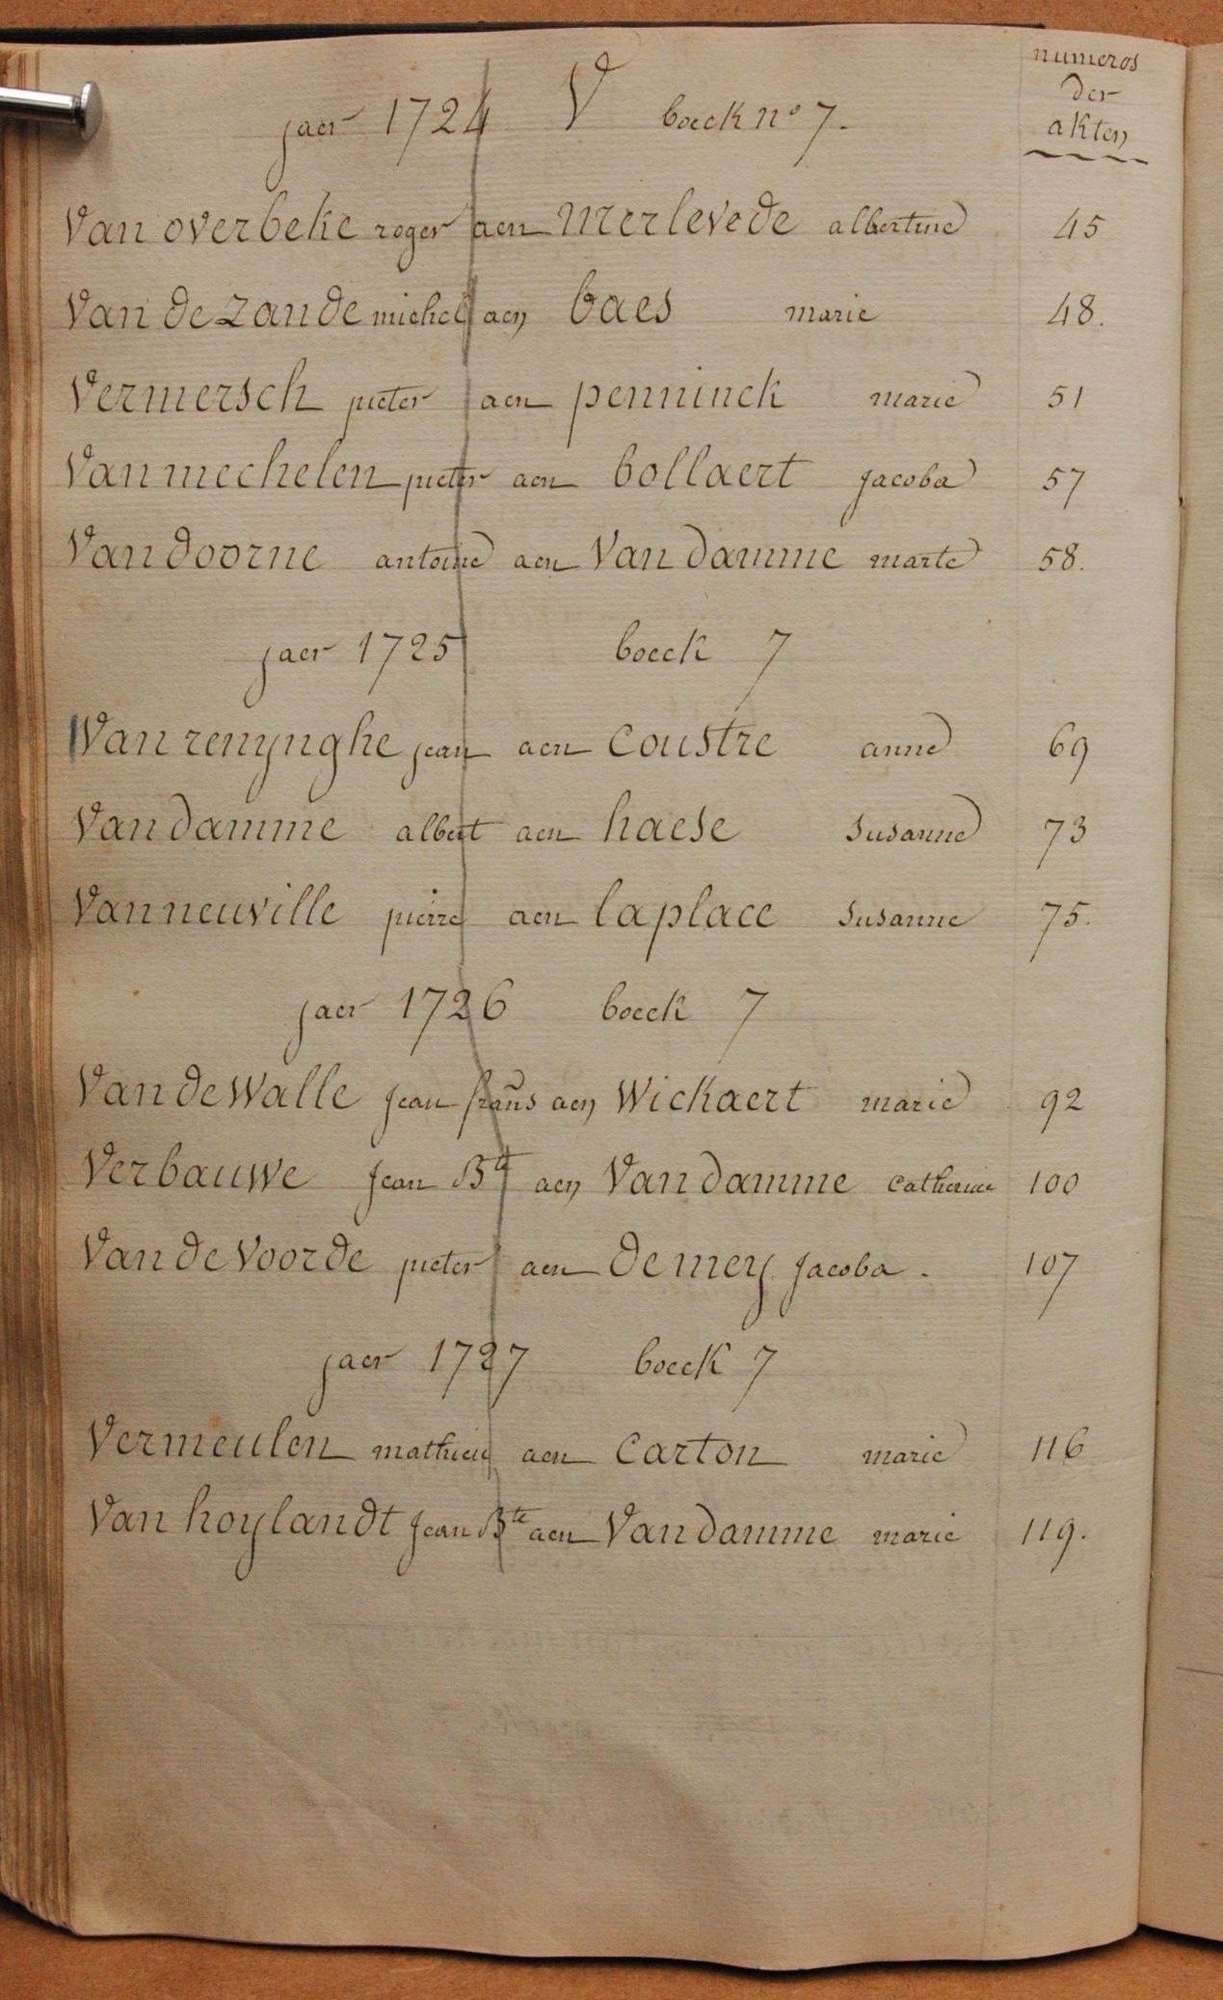 numeros
der
akten
jaer 1724 V boeck nº 7.
Van overbeke roger aen Merlevede albertine 45
Van de Zande michel aen baes marie 48.
Vermersch pieter aen penninck marie 51
Van mechelen pieter aen bollaert jacoba 57
Van doorne antoine aen Van damme marte 58.
jaer 1725 boeck 7
Van renynghe jean aen coustre anne 69
Van damme albert aen haese Susanne 73
Van neuville pierre aen laplace Susanne 75.
jaer 1726 boeck 7
Van de Walle Jean frans aen Wickaert marie 92
Verbauwe Jean Bte aen Van damme catherine 100
Van de Voorde pieter aen de mey Jacoba. 107
jaer 1727 boeck 7
Vermeulen mathieu aen carton marie 116
Van hoylandt Jean Bte aen Van damme marie 119.